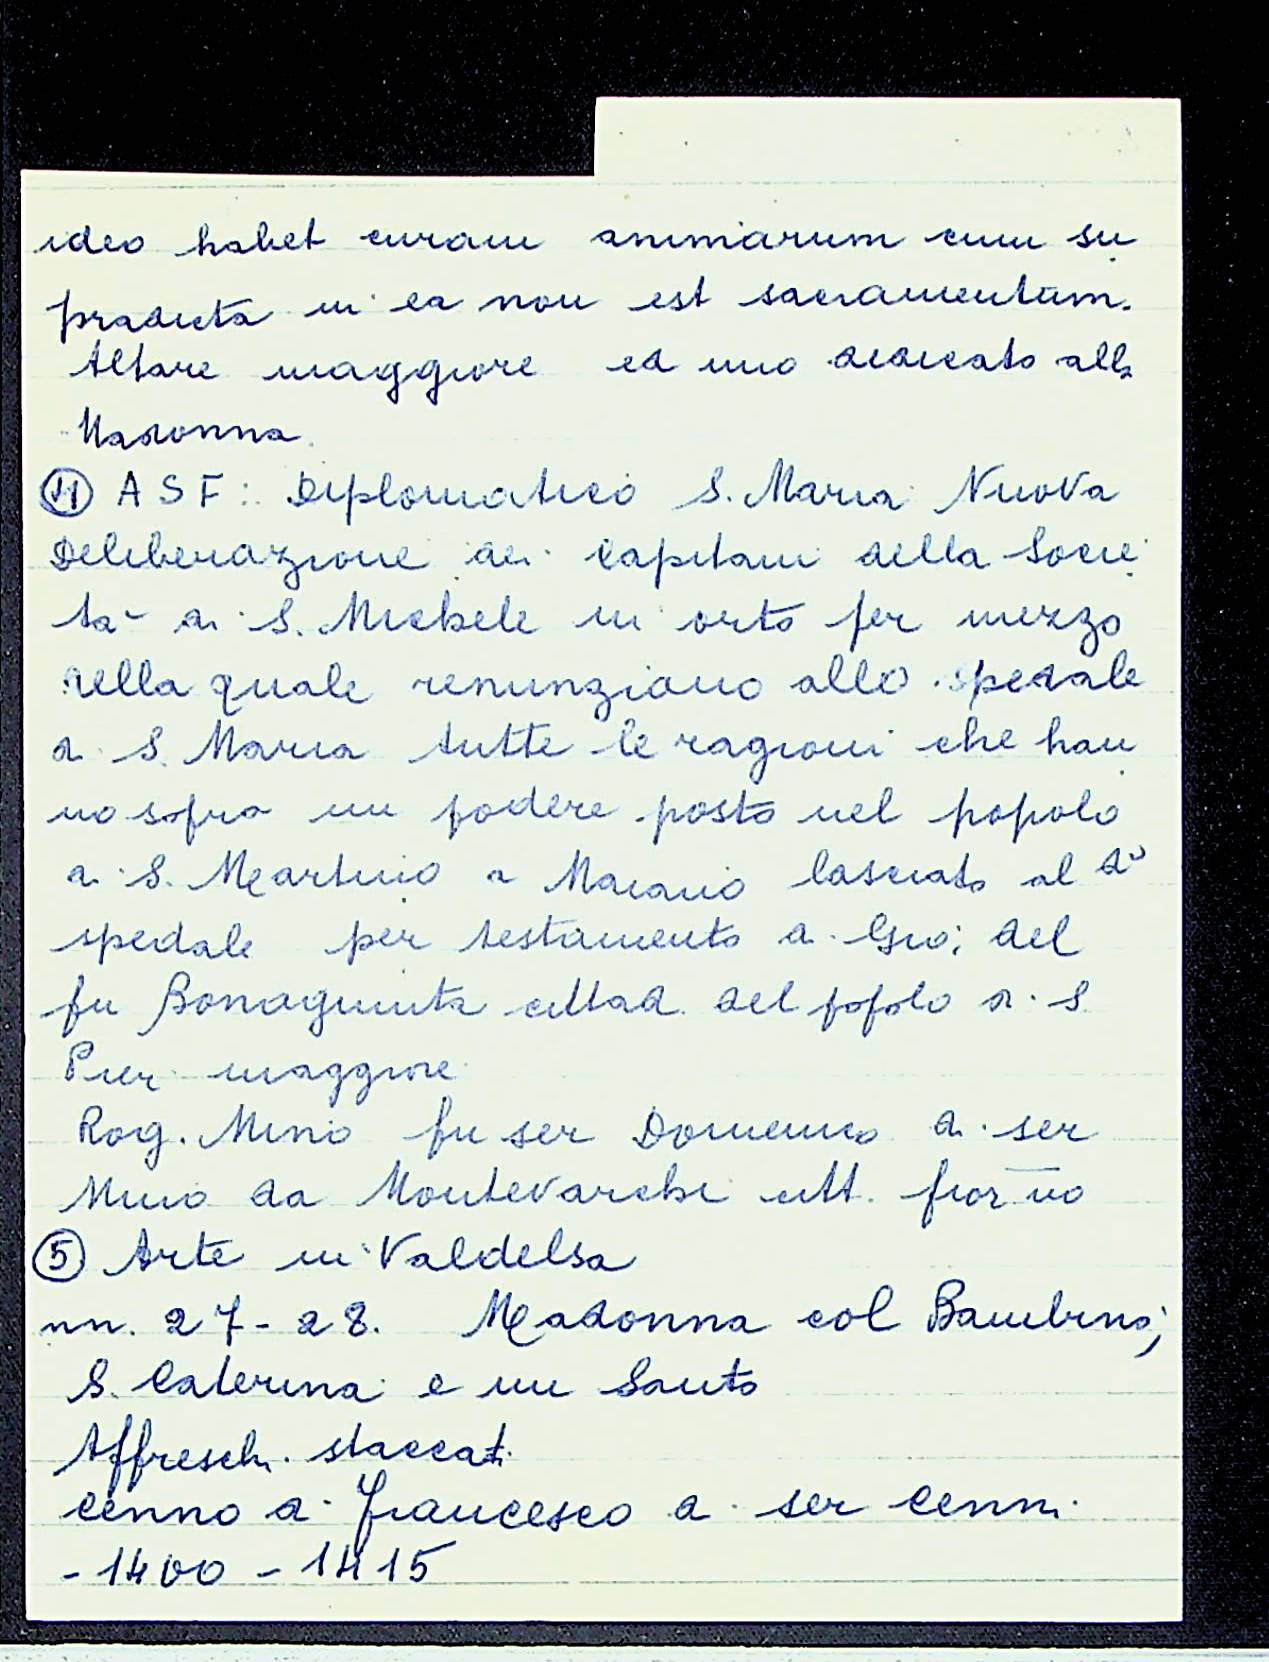 ideo habet curam animarum cum su
pradicta in ea non est sacramentum.
Altare maggiore ed uno dedicato alla
Madonna.
④ ASF: Diplomatico S. Maria Nuova
Deliberazione dei Capitani della Socie
tà di S. Michele in orto per mezzo
della quale renunziano allo spedale
di S. Maria tutte le ragioni che han
no sopra un podere posto nel popolo
di S. Martino a Maiano lasciato al dº
spedale per testamento di Gio: del
fu Bonagiunta cittad. del popolo di S.
Pier maggiore
Rog. Mino fu ser Domenico di ser
Mino da Montevarchi citt. fior no
⑤ Arte in Valdelsa
nn. 27-28. Madonna col Bambino;
S. Caterina e un Santo
Affreschi staccati
Cenno di Francesco di ser Cenni
- 1400 - 1415